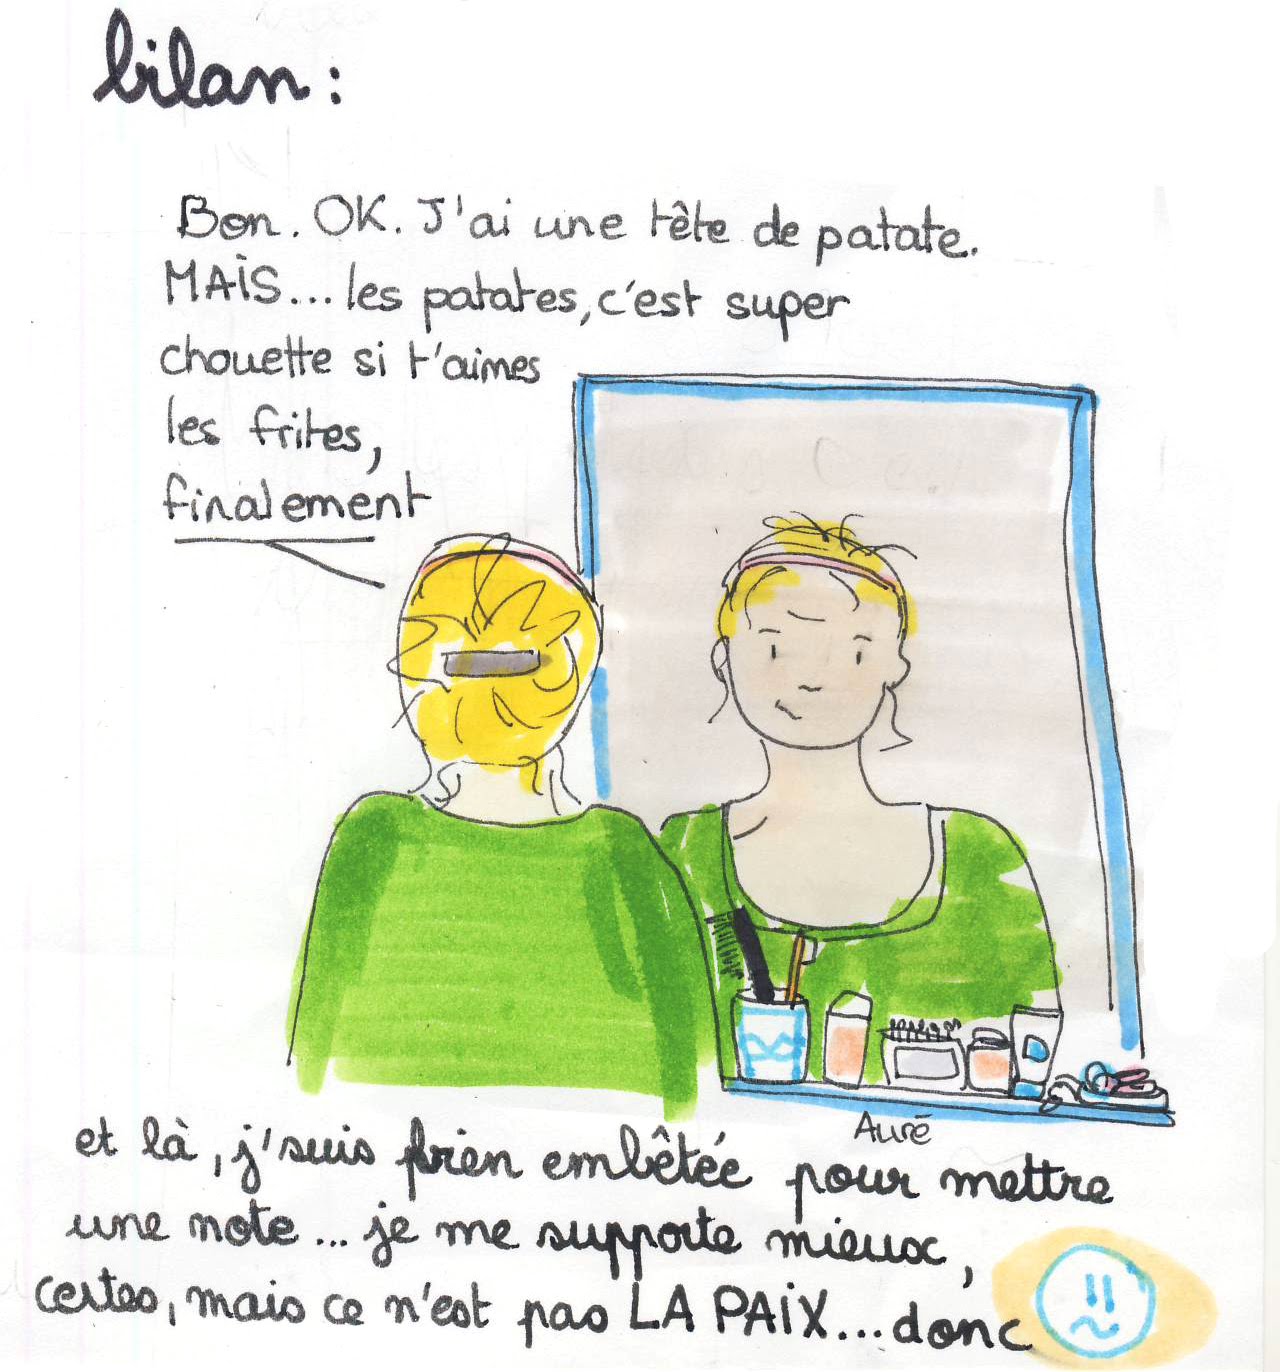 bilan :
Bon. OK. J'ai une tête de patate.
MAIS... les patates, c'est super
chouette si t'aimes
les frites,
finalement
Auré
et là, j'suis bien embêtée pour mettre
une note... je me supporte mieux,
certes, mais ce n'est pas LA PAIX... donc